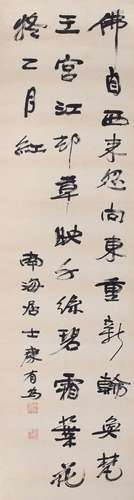 佛自西来忽向東重新輪奐梵
王宫江邨草映千絲碧霜葉花
於二月紅
南海居士康有為